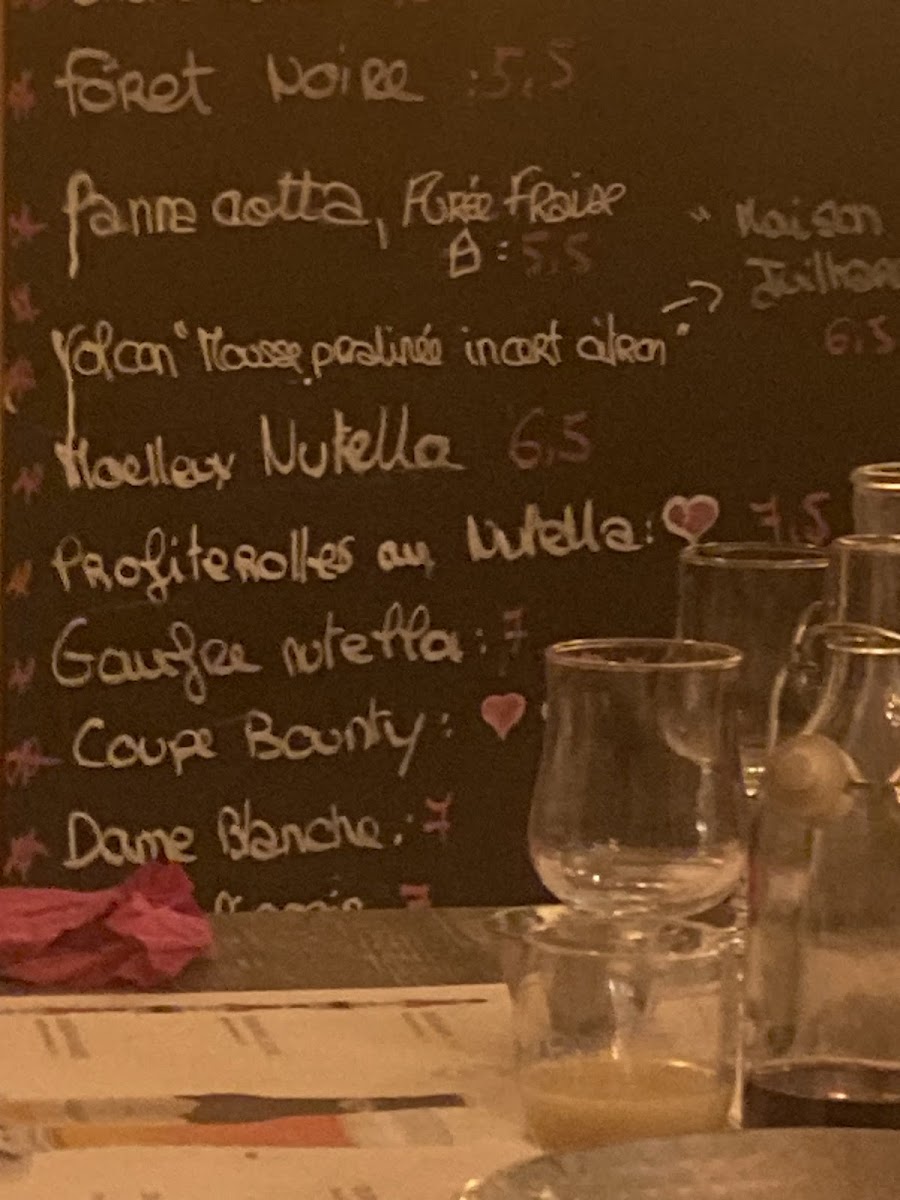 forêt Noire : 5,5
Panna cotta, Purée Fraise
: 5,5
" Maison
Volcan "Mousse pralinée insert citron"
6,5
Moelleux Nutella 6,5
Profiterolles au Nutella: 7,5
Gaufre nutella: 7
Coupe Bounty:
Dame Blanche: 7